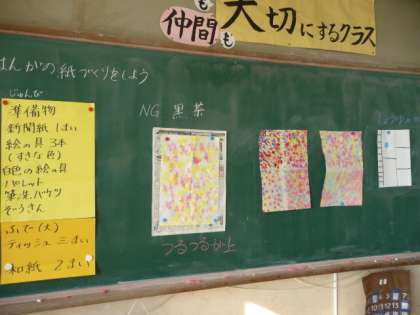 も
仲間も
大切にするクラス
はんがの紙づくりをしよう
じゅんび
準備物
新聞紙 1まい
絵の具 3本
(すきな色)
白色の絵の具
パレット
筆洗バケツ
ぞうきん
ふで(大)
ティッシュ 三まい
和紙 2まい
NG 黒 茶
つるつるが上